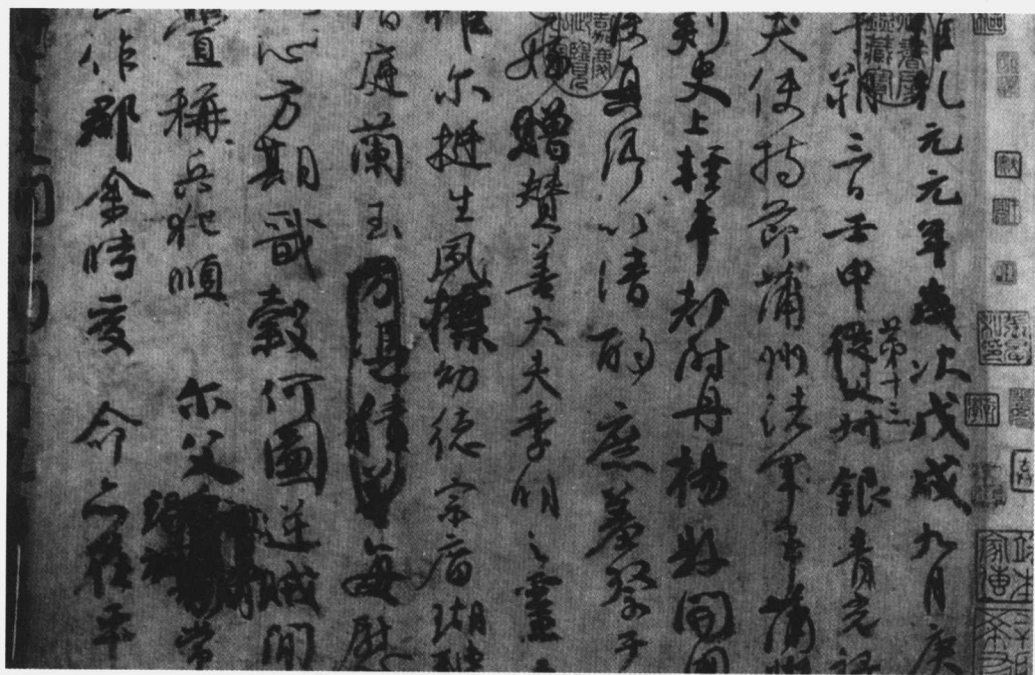 維乾元元年歲次戊戌九月庚
午朔三日壬申第十三從父叔銀青光祿
夫使持節蒲州諸軍事蒲州
刺史上輕車都尉丹楊縣開國
侯真卿以清酌庶羞祭于
姪贈贊善大夫季明之靈
惟爾挺生夙標幼德宗廟瑚璉
階庭蘭玉方憑積善每慰
心方期戩穀何圖逆賊閒
釁稱兵犯順爾父竭誠常
山作郡余時受命亦在平